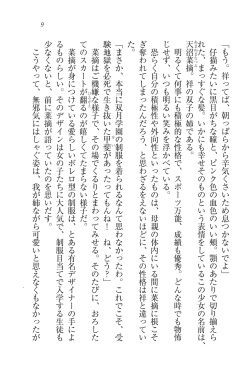 9
「もう。祥ってば、朝っぱらから辛気くさいため息つかないでよ」
仔猫みたいに黒目がちな瞳と、ピンク色の血色のいい頬。顎のあたりで切り揃えら
れた、まっすぐな髪。いかにも幸せそのものという表情をしているこの少女の名前は、
天沼菜摘。祥の双子の姉である。
明るくて何事にも積極的な性格で、スポーツ万能、成績も優秀。どんな時でも物怖
じせず、いつも明るい笑みを浮かべている。
恐らく自分の積極性や外向性といったものは、母親の体内にいる間に菜摘に根こそ
ぎ奪われてしまったに違いない、と祥は思う。それほどに、その性格は祥と違ってい
た。
「まさか、本当に双月学園の制服を着られるなんて思わなかったわ！これでこそ、受
験地獄を必死で生き抜いた甲斐があってもんね！　ね、どう？」
菜摘はご機嫌な様子で、その場でくるりとまわってみせる。そのたびに、おろした
てのスカートが翻るのが眩しい。
菜摘が身につけている愛らしいボレロ型の制服は、とある有名デザイナーの手によ
るものらしい。そのデザインは女の子たちに大人気で、制服目当てで入学する生徒も
少なくないと、前に菜摘が語っていたのを思いだす。
こうやって、無邪気にはしゃぐ姿は、我が姉ながら可愛いと思えなくもなかったが